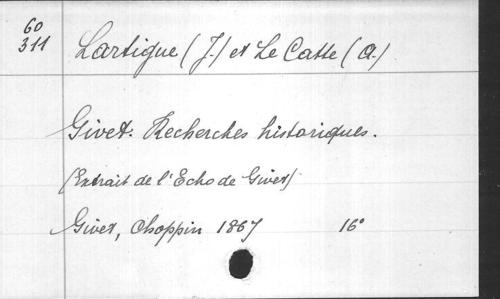 60
311
Lartigue (J.) et Le Catte (A.)
Givet. Recherches historiques.
(Extrait de l'Echo de Givet)
Givet, Choppin 1867 16°